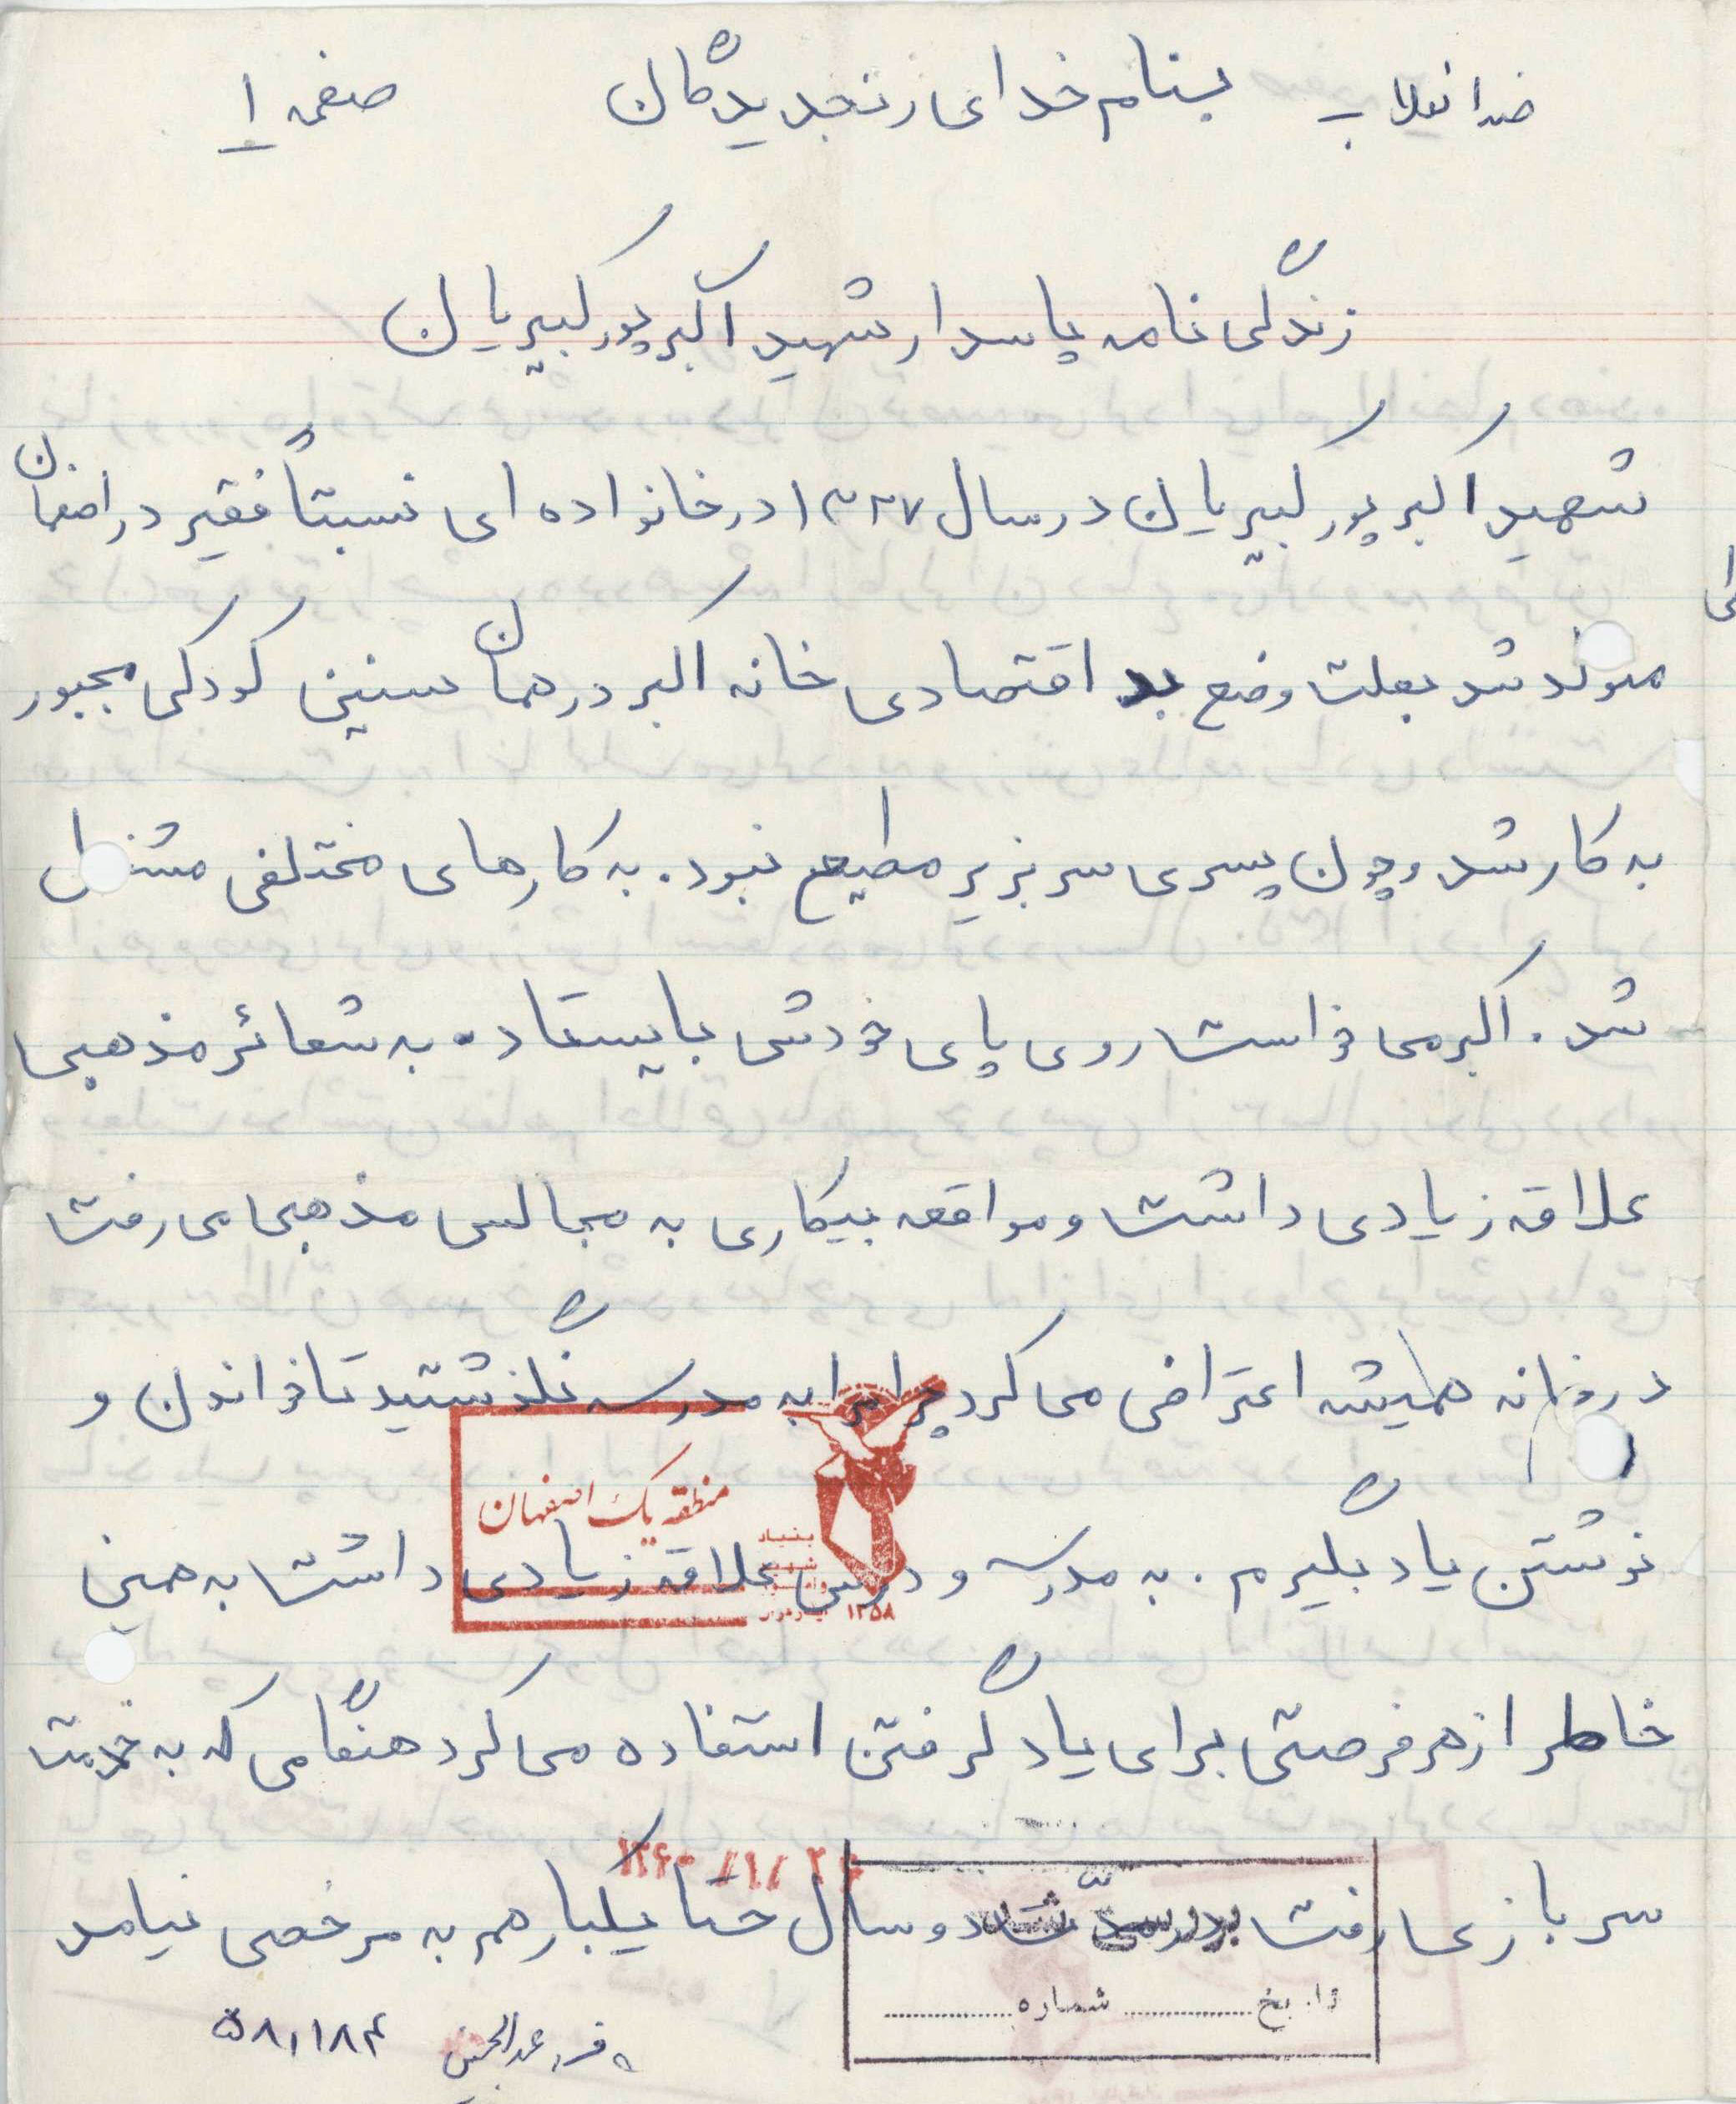 ضد انقلاب بنام خدای رنجدیدگان صفحه ۱
زندگی نامه پاسدار شهید اکبر پور کبیریان
شهید اکبر پور کبیریان در سال ۱۳۳۷ در خانواده ای نسبتاً فقیر در اصفهان
متولد شد بعلت وضع بد اقتصادی خانه اکبر در همان سنین کودکی مجبور
به کار شد و چون پسری سربزیر مطیع نبود. به کارهای مختلفی مشغول
شد. اکبر می خواست روی پای خودش بایستاد. به شعائر مذهبی
علاقه زیادی داشت و مواقعه بیکاری به مجالس مذهبی می رفت
در خانه همیشه اعتراض می کرد چرا مرا به مدرسه نگذشتید تا خواندن و
منطقه یک اصفهان
بنیاد شهید
۱۳۵۸
نوشتن یاد بگیرم. به مدرسه و درس علاقه زیادی داشت به همین
خاطر از هر فرصتی برای یاد گرفتن استفاده می کرد هنگامی که به خدمت
سربازی رفت در مدت دو سال حتا یکبار هم به مرخصی نیامد
بررسی شد
تاریخ شماره
عبدالحسین